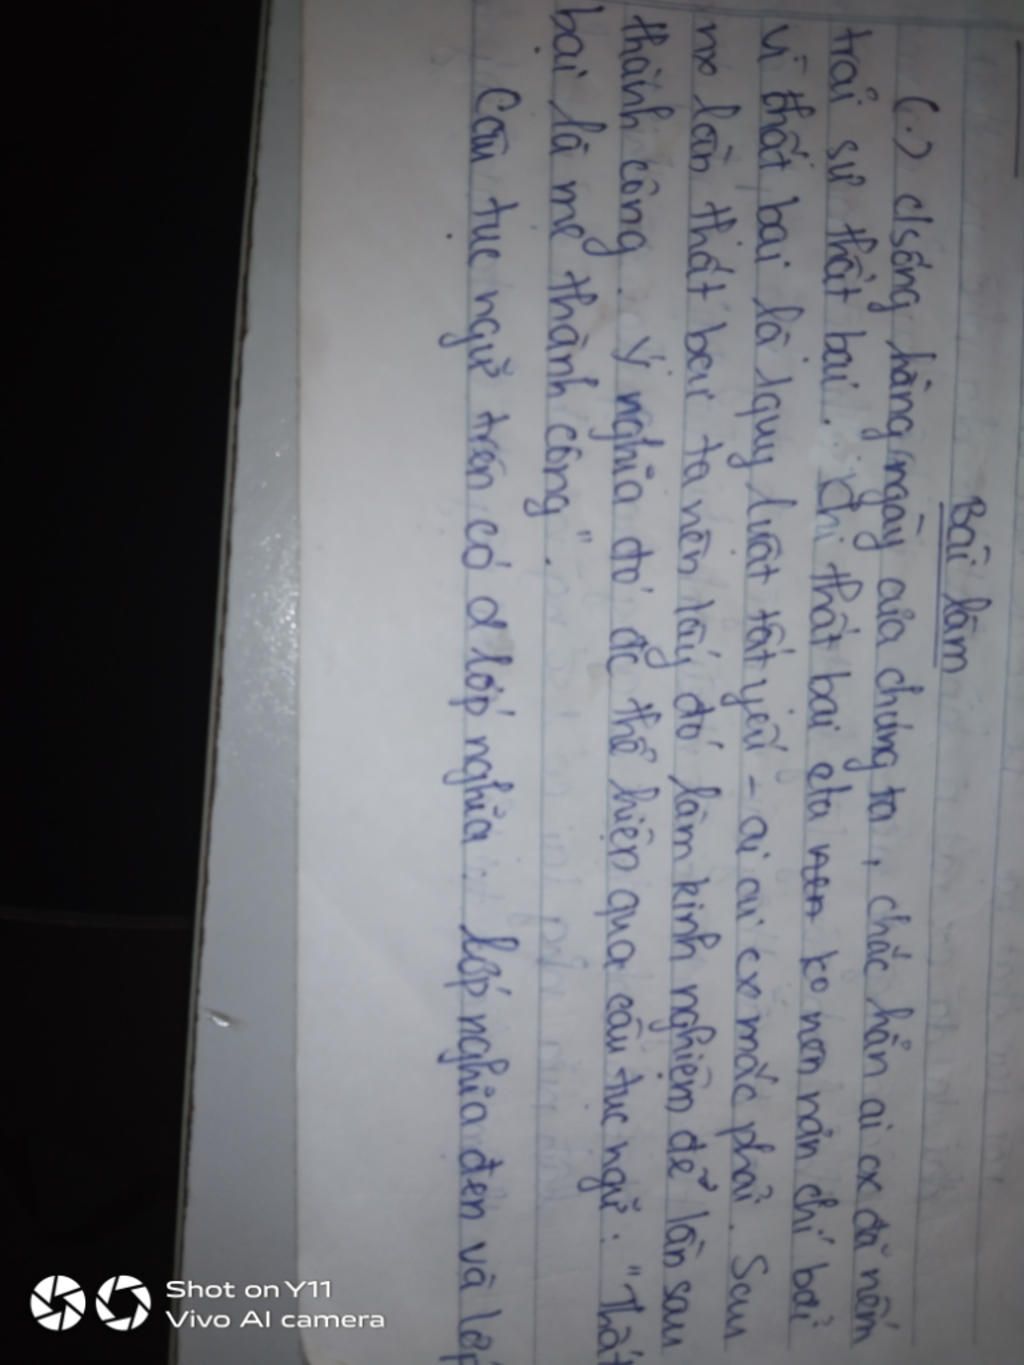 Bài làm
(.) c/sống hằng ngày của chúng ta, chắc hẳn ai cx đã nếm
trải sự thất bại. Khi thất bại cta nên ko nên nản chí bởi
vì thất bại là 1 quy luật tất yếu - ai ai cx mắc phải. Sau
mỗ lần thất bại ta nên lấy đó làm kinh nghiệm để lần sau
thành công. Ý nghĩa đó đc thể hiện qua câu tục ngữ: "Thất
bại là mẹ thành công".
Câu tục ngữ trên có 2 lớp nghĩa: lớp nghĩa đen và lớp
Shot on Y11
Vivo AI camera